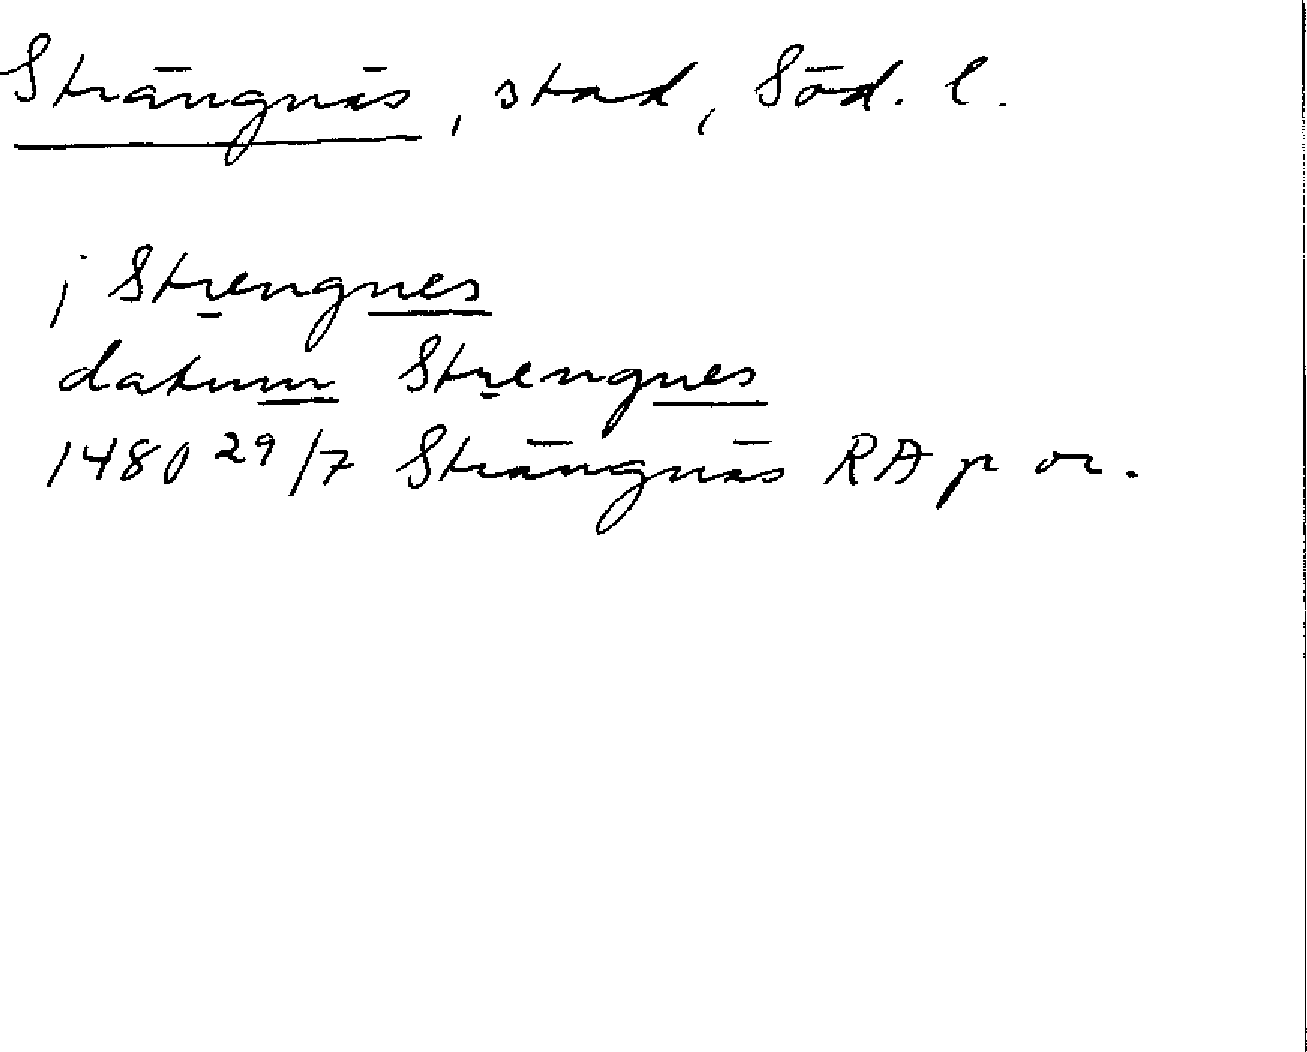 Strängnäs, stad, Söd. l.
j Strengnes
datum Strengnes
1480 29/7 Strängnäs RA p or.